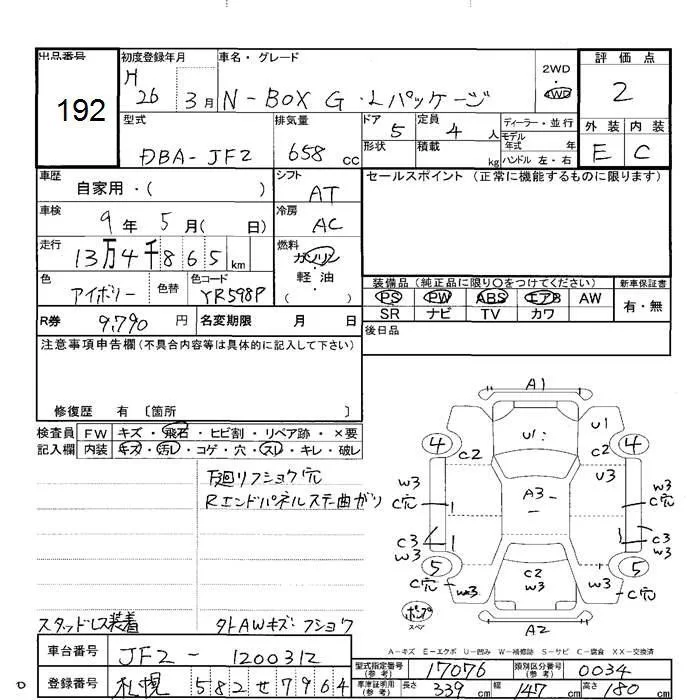 出品番号 初度登録年月 車名・グレード 評価点
192 H 26 3月 N-BOX G・Lパッケージ 2WD・4WD 2
型式 排気量 ドア 定員 ディーラー・並行 外装 内装
DBA-JF2 658cc 5 4人 モデル年式 年 E C
形状 積載 kg ハンドル 左・右
車歴 自家用・( ) シフト AT セールスポイント(正常に機能するものに限ります)
車検 9年5月( 日) 冷房 AC
走行 13万4千865km 燃料 ガソリン・軽油・( )
色 アイボリー 色替 色コード YR598P
装備品(純正品に限り○をつけてください) 新車保証書
PS PW ABS エアB AW 有・無
SR ナビ TV カワ
R券 9,790円 名変期限 月 日 後日品
注意事項申告欄(不具合内容等は具体的に記入して下さい)
修復歴 有〔箇所 〕
検査員 FW キズ・飛石・ヒビ割・リペア跡・×要
記入欄 内装 キズ・汚レ・コゲ・穴・スレ・キレ・破レ
下廻リフショク穴
Rエンドパネルステー曲ガリ
スタッドレス装着 タトAWキズ・フショク
A1
U1: U1
4 C2 C2 4
U3
W3 A3 W3
C穴 C穴
C3 C3
W3 W3
5 C2 5
C穴 W3 W3 W3 C穴
ポンプ
スペア
A2
A-キズ E-エクボ U-凹み W-補修跡 S-サビ C-腐食 XX-交換済
車台番号 JF2-1200312 型式指定番号(参考) 17076 類別区分番号(参考) 0034
D 登録番号 札幌 582せ7964 車体証明用(参考) 長さ 339cm 幅 147cm 高さ 180cm